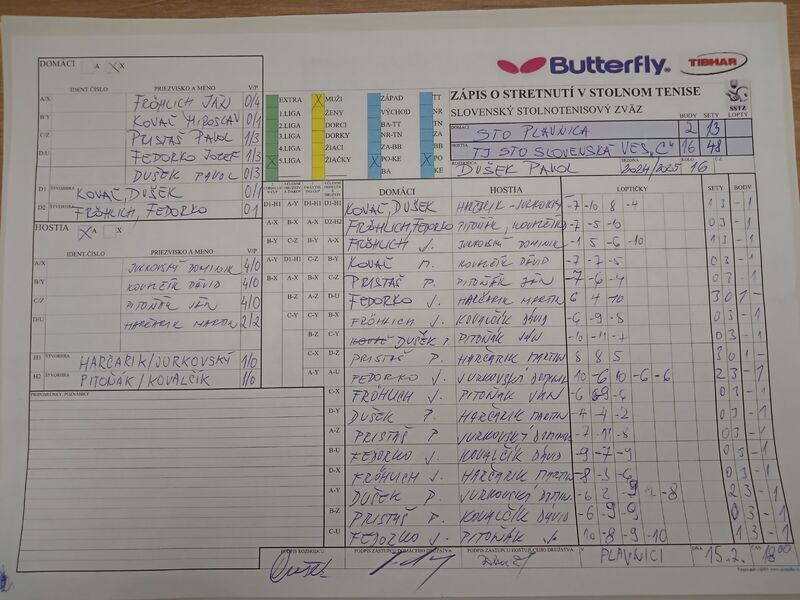 Butterfly TIBHAR
ZÁPIS O STRETNUTÍ V STOLNOM TENISE
SLOVENSKÝ STOLNOTENISOVÝ ZVÄZ
SSTZ
BODY SETY LOPTY
DOMÁCI STO PLAVNICA 2 13
HOSTIA TJ STO SLOVENSKÁ VES „C" 16 48
ROZHODCA DUŠEK PAVOL SEZÓNA 2024/2025 KOLO 16 Č.Z.
DOMÁCI A X X
IDENT.ČÍSLO PRIEZVISKO A MENO V/P
A/X FRÖHLICH JÁN 0/4
B/Y KOVAČ MIROSLAV 0/1
C/Z PRISTAŠ PAVOL 1/3
D/U FEDORKO JOZEF 1/3
DUŠEK PAVOL 0/3
D1 ŠTVORHRA KOVAČ, DUŠEK 0/1
D2 ŠTVORHRA FRÖHLICH, FEDORKO 0/1
HOSTIA X A X
IDENT.ČÍSLO PRIEZVISKO A MENO V/P
A/X JURKOVSKÝ DOMINIK 4/0
B/Y KOVALČÍK DÁVID 4/0
C/Z PITOŇÁK JÁN 4/0
D/U HARČARIK MARTIN 2/2
H1 ŠTVORHRA HARČARIK/JURKOVSKÝ 1/0
H2 ŠTVORHRA PITOŇÁK/KOVALČÍK 1/0
PRIPOMIENKY, POZNÁMKY
EXTRA X MUŽI ZÁPAD TT
1.LIGA ŽENY VÝCHOD NR
2.LIGA DORCI BA-TT TN
3.LIGA DORKY NR-TN ZA
4.LIGA ŽIACI ZA-BB BB
X 5.LIGA ŽIAČKY X PO-KE X PO
BA KE
DOMÁCI HOSTIA LOPTIČKY SETY BODY
D1-H1 A-Y D1-H1 D1-H1 KOVAČ, DUŠEK HARČARIK-JURKOVSKÝ -7 -10 8 -4 1 3 - 1
A-X B-X A-X D2-H2 FRÖHLICH, FEDORKO PITOŇÁK, KOVALČÍK -7 -5 -10 0 3 - 1
B-Y C-Z B-Y A-X FRÖHLICH J. JURKOVSKÝ DOMINIK -1 5 -6 -10 1 3 - 1
A-Y D1-H1 C-Z B-Y KOVAČ M. KOVALČÍK DÁVID -7 -7 -5 0 3 - 1
B-X A-X B-X C-Z PRISTAŠ P. PITOŇÁK JÁN -7 -6 -4 0 3 - 1
B-Z A-Z D-U FEDORKO J. HARČARIK MARTIN 6 4 10 3 0 1 -
C-Y C-Y B-X FRÖHLICH J. KOVALČÍK DÁVID -6 -9 -8 0 3 - 1
B-Z C-Y DUŠEK P. PITOŇÁK JÁN -10 -11 -7 0 3 - 1
C-X D-Z PRISTAŠ P. HARČARIK MARTIN 8 8 5 3 0 1 -
A-Y A-U FEDORKO J. JURKOVSKÝ DOMINIK 10 -6 10 -6 -6 2 3 - 1
C-X FRÖHLICH J. PITOŇÁK JÁN 0 3 - 1
D-Y DUŠEK P. HARČARIK MARTIN -4 -4 -2 0 3 - 1
A-Z PRISTAŠ P JURKOVSKÝ DOMINIK -7 -11 -8 0 3 - 1
B-U FEDORKO J. KOVALČÍK DÁVID -9 -7 -9 0 3 - 1
D-X FRÖHLICH J. HARČARIK MARTIN -8 -3 -6 0 3 - 1
A-Y DUŠEK P. JURKOVSKÝ DOMIN. 2 3 - 1
B-Z PRISTAŠ P. KOVALČÍK DÁVID -6 -9 -9 0 3 - 1
C-U FEDORKO J. PITOŇÁK J. 10 -8 -9 -10 1 3 - 1
PODPIS ROZHODCU PODPIS ZÁSTUPCU DOMÁCEHO DRUŽSTVA PODPIS ZÁSTUPCU HOSŤUJÚCEHO DRUŽSTVA V PLAVNICI DŇA 15.2. ČAS 18:00